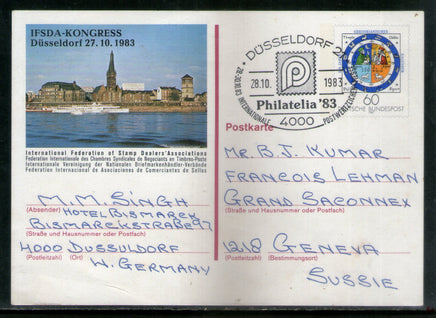 IFSDA-KONGRESS
Düsseldorf 27.10.1983
International Federation of Stamp Dealers'Associations
Federation Internationale des Chambres Syndicales de Negociants en Timbre-Poste
Internationale Vereinigung der Nationalen Briefmarkenhändler-Verbände
Federacion Internacional de Asociaciones de Comerciantes de Sellos
M.M. SINGH
(Absender)
HOTEL BISMARCK
BISMARCKSTRAßE 97
(Straße und Hausnummer oder Postfach)
4000 DUSSULDORF
(Postleitzahl) (Ort)
W. GERMANY
DÜSSELDORF
28.10. 1983
Philatelia '83
4000
60
DEUTSCHE BUNDESPOST
Postkarte
MR. B.J. KUMAR
FRANCOIS LEHMAN
GRAND SACONNEX
(Straße und Hausnummer oder Postfach)
1218 GENEVA
(Postleitzahl) (Bestimmungsort)
SUSSIE